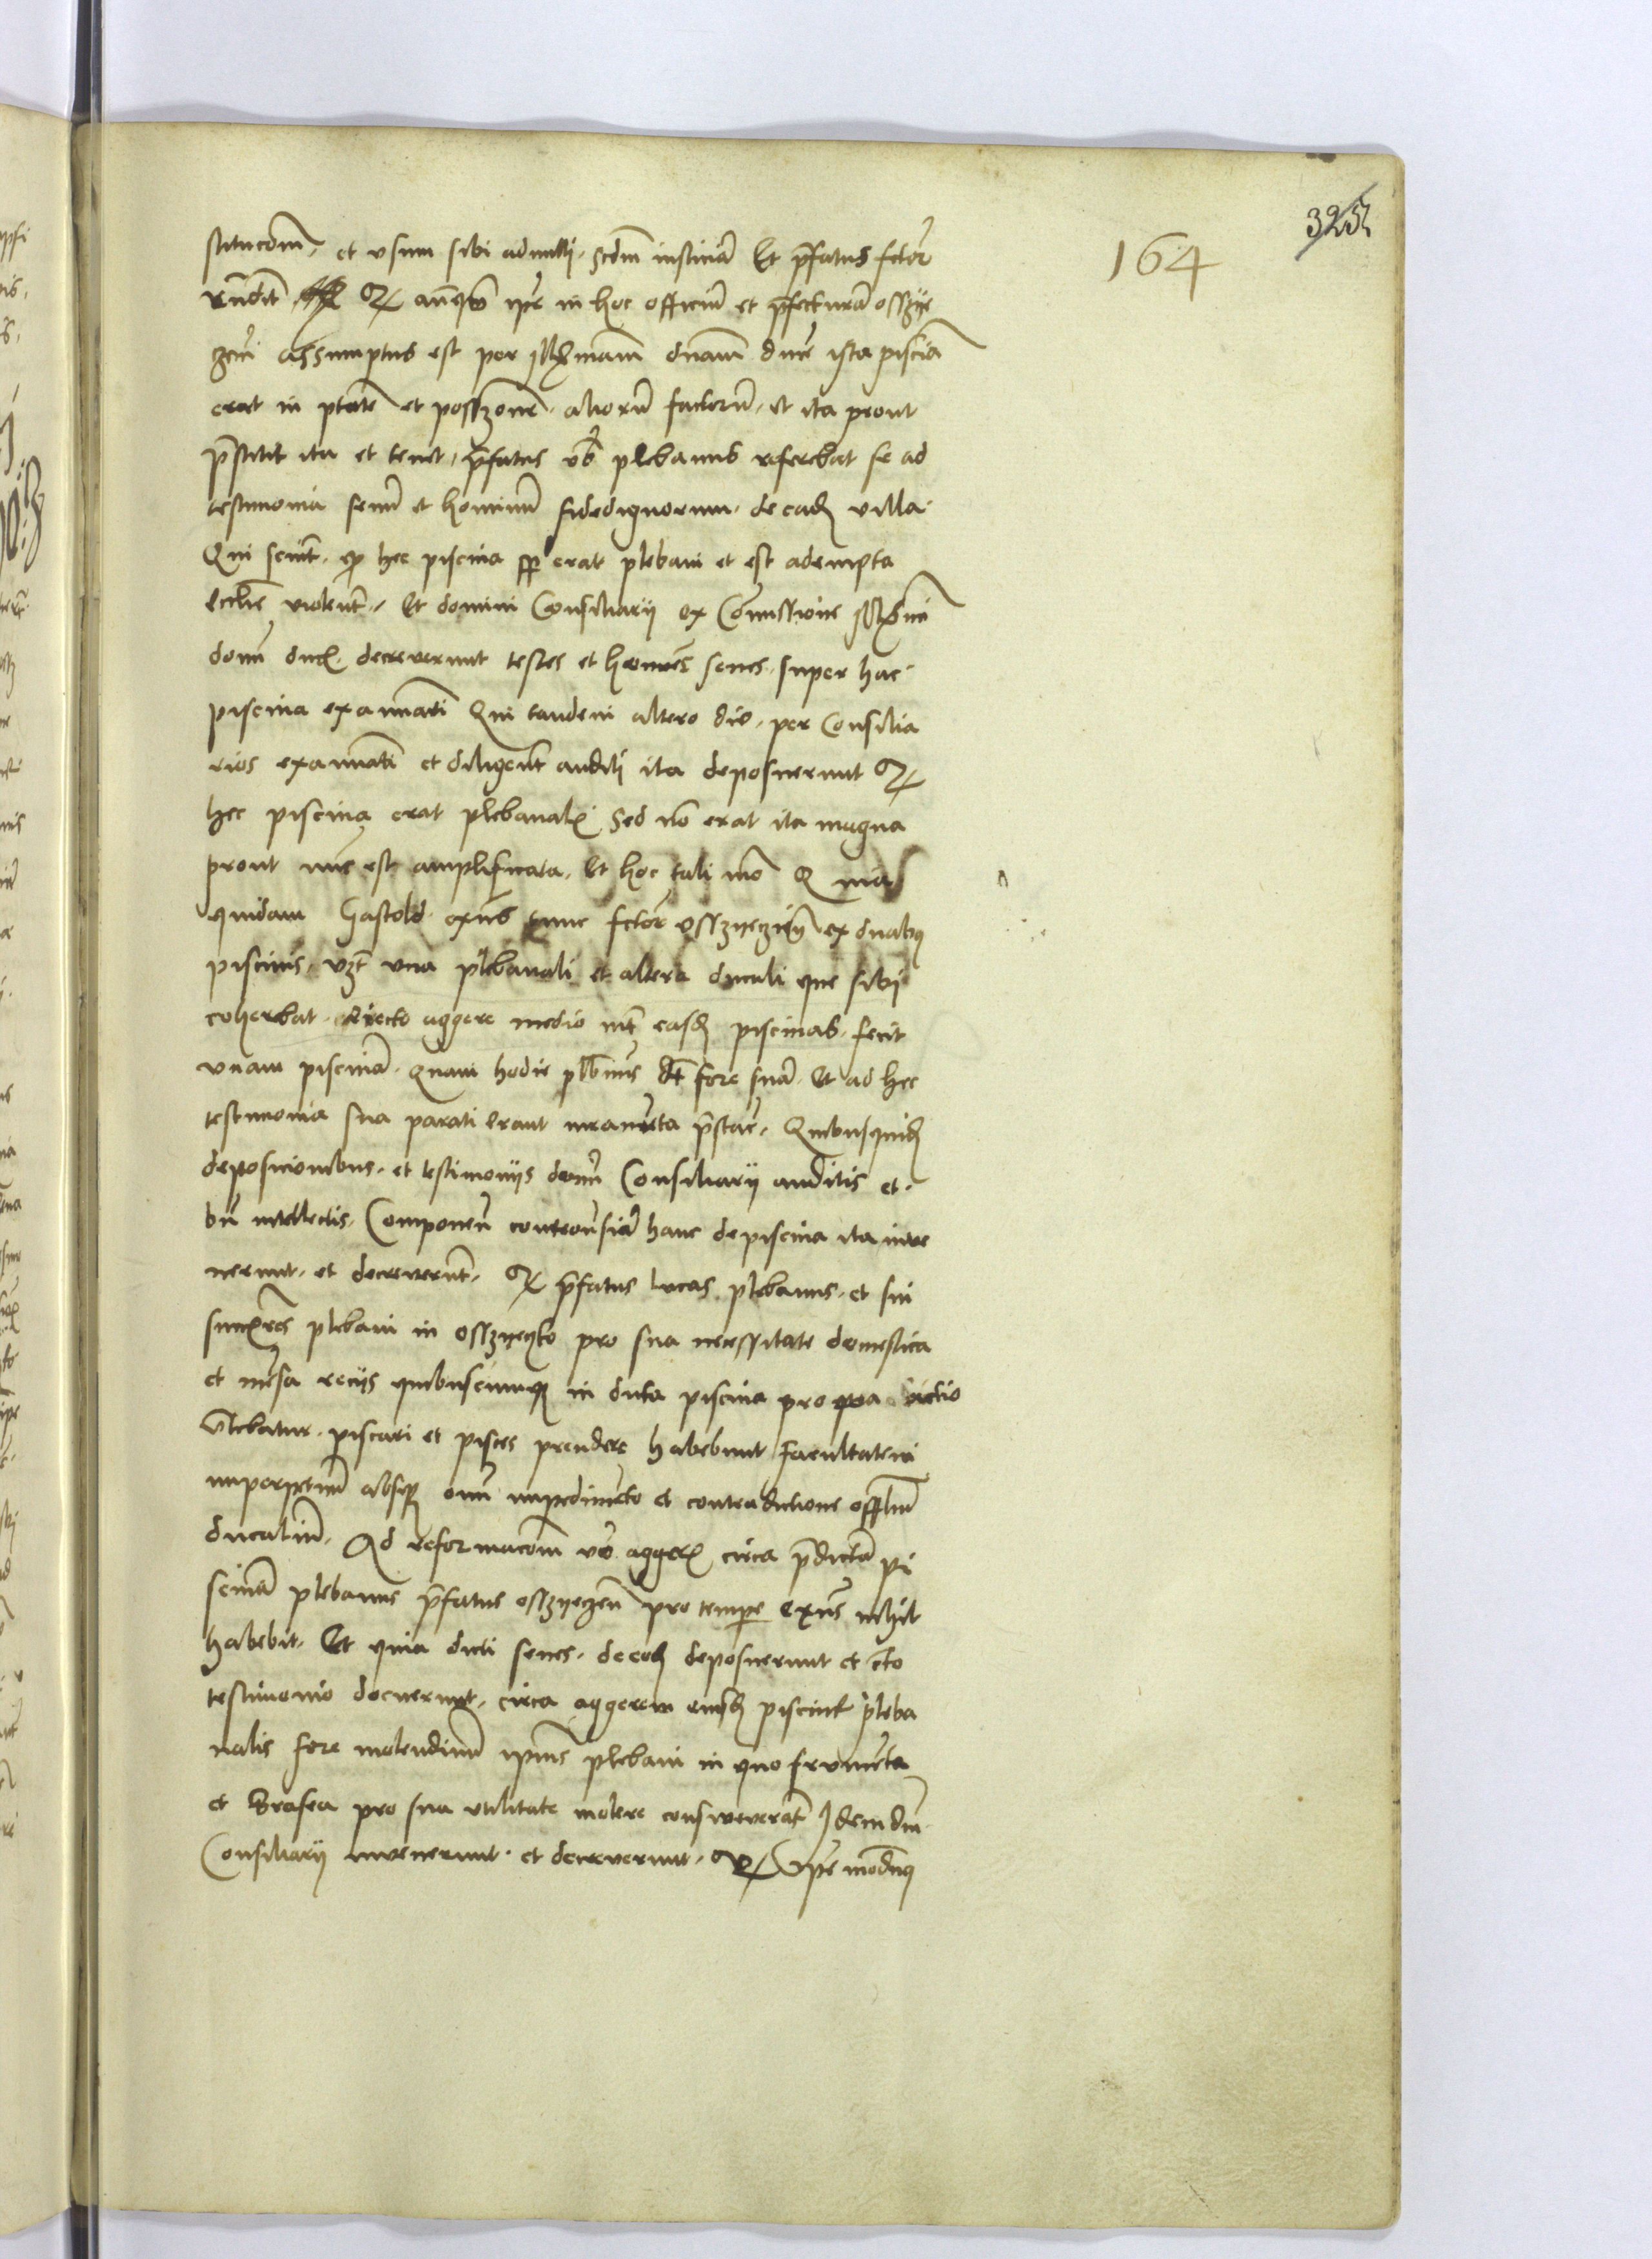 325
164
stitucōm, et vsum sibi admitti, scdm iusticiā Et p̄fatus fctor
Rn̄dit Q anteq̄ ip̄e in hoc officiū et p̄fecturā osszye
zen̄ assumptus est per Illmam dnam duce ista piscīa
erat in ptāte et possione alioru factoru, et ita prout
p̄stitit ita et tenet, p̄fatus plebanus referebat se ad
testimonia senū et hominū fidedignorum de eadē villa
Qui sciūt q hec piscina sp erat plebani et est adempta
ecclīe violent̄, Et domini Consiliarij ex Cōmissione Illmi
domī ducꝭ decreverunt testes et homīes senes super hac
piscina examinari Qui tandem altero die, per Consilia
rios examinati et diligent̄ auditi ita deposuerunt Q
hec piscina erat plebanalꝭ Sed nō erat ita magna
prout nūc est amplificata, Et hoc tali mō Q nia
quidam Gastold exn̄s tunc fctor osszyeczīen̄ ex duabꝰ
piscinis, vzt vna plebanali et altera ducali que sibi
coherebat directo aggere medio int̄ easdē piscinas fecit
vnam piscinā quam hodie plbanus dt̄ fore suā Et ad hec
testimonia sua parati erant iuramēta p̄stare, Quibusquidē
deposicionibus et testimonijs domī Consiliarij auditis et
bn̄ intellectis, Componen̄ controversiā hanc de piscina ita inve
nerunt et decreverūt, Q p̄fatus lucas plebanus et sui
succꝰores plebani in osszyeczko pro sua necessitate domestica
et mēsa reciis quibuscunqꝫ in dicta piscina pro qua actio
vtebatur piscari et pisces prendere habebunt facultatem
imperpetuū absqꝫ omī impedimēto et contradictione offlīum
ducaliū. Ad reformacōm vero aggerꝭ circa p̄dictā pi
scinā plebanus p̄fatus osszyeczen̄ pro tempore exn̄s nihil
habebit. Et quia dicti senes de eodē deposuerunt et cto
testimonio docuerunt, circa aggerem eiusdē piscine pleba
nalis fore molendinū ip̄ius plebani in quo frumēta
et Brasea pro sua vtilitate molere consweverat Idem dn̄i
Consiliarij invenerunt et decreverunt, Q ip̄e modnꝰ